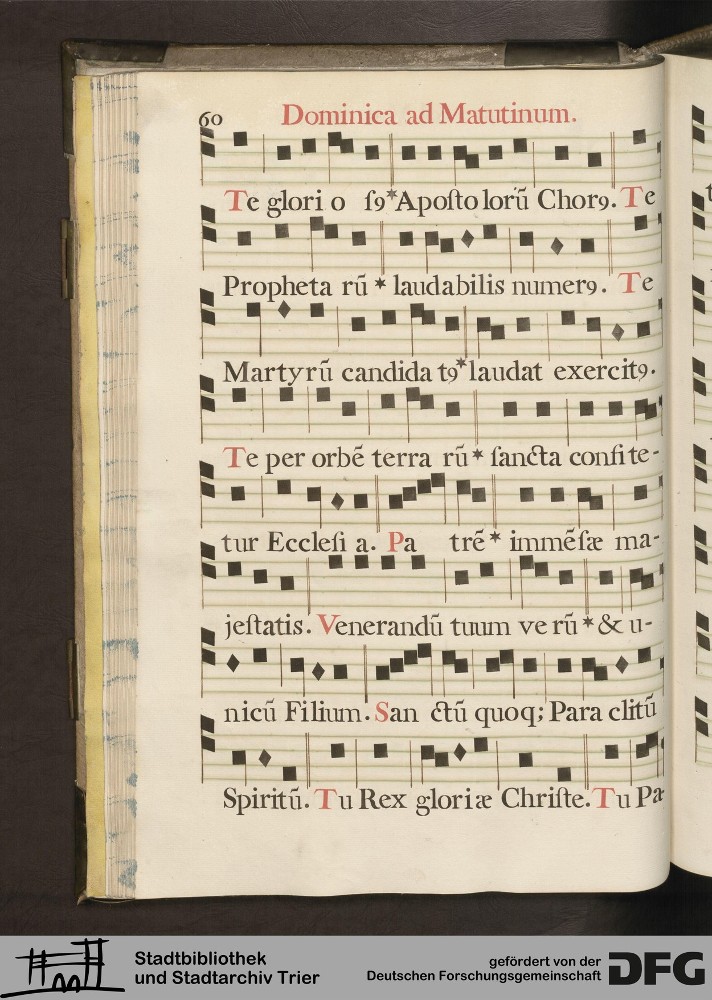 60 Dominica ad Matutinum.
Te glori o ſ9 * Apoſto lorū Chor9. Te
Propheta rū * laudabilis numer9. Te
Martyrū candida t9 * laudat exercit9.
Te per orbē terra rū * ſancta confite-
tur Eccleſi a. Pa trē * immēſæ ma-
jeſtatis. Venerandū tuum ve rū * & u-
nicū Filium. San ctū quoq; Para clitū
Spiritū. Tu Rex gloriæ Chriſte. Tu Pa
Stadtbibliothek
und Stadtarchiv Trier
gefördert von der
Deutschen Forschungsgemeinschaft
DFG